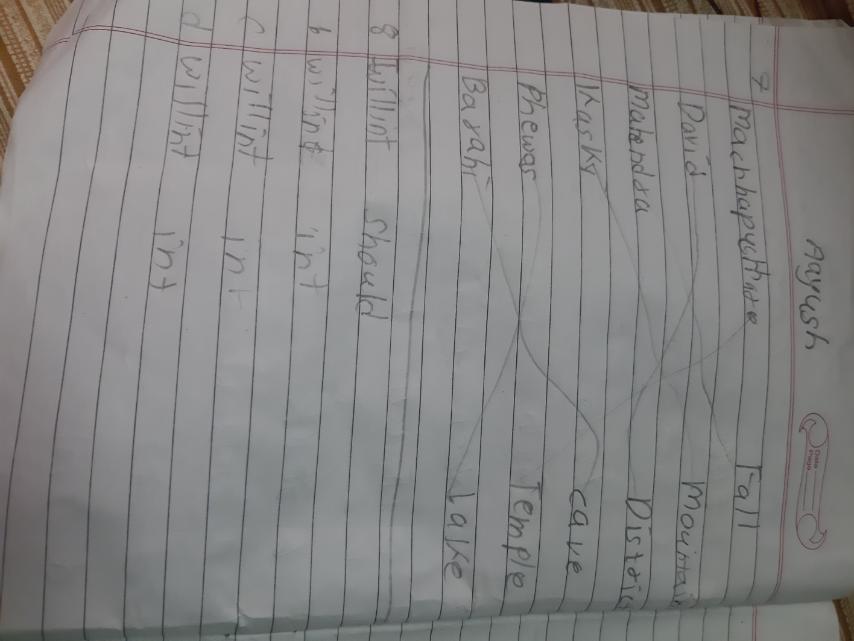 Aayush
Date
Page
9 Machhapuchhre Fall
David Mountain
Mahendra District
Kasky cave
Phewas Temple
Barahi Lake
8 willint should
b willint int
c willint int
d willint int